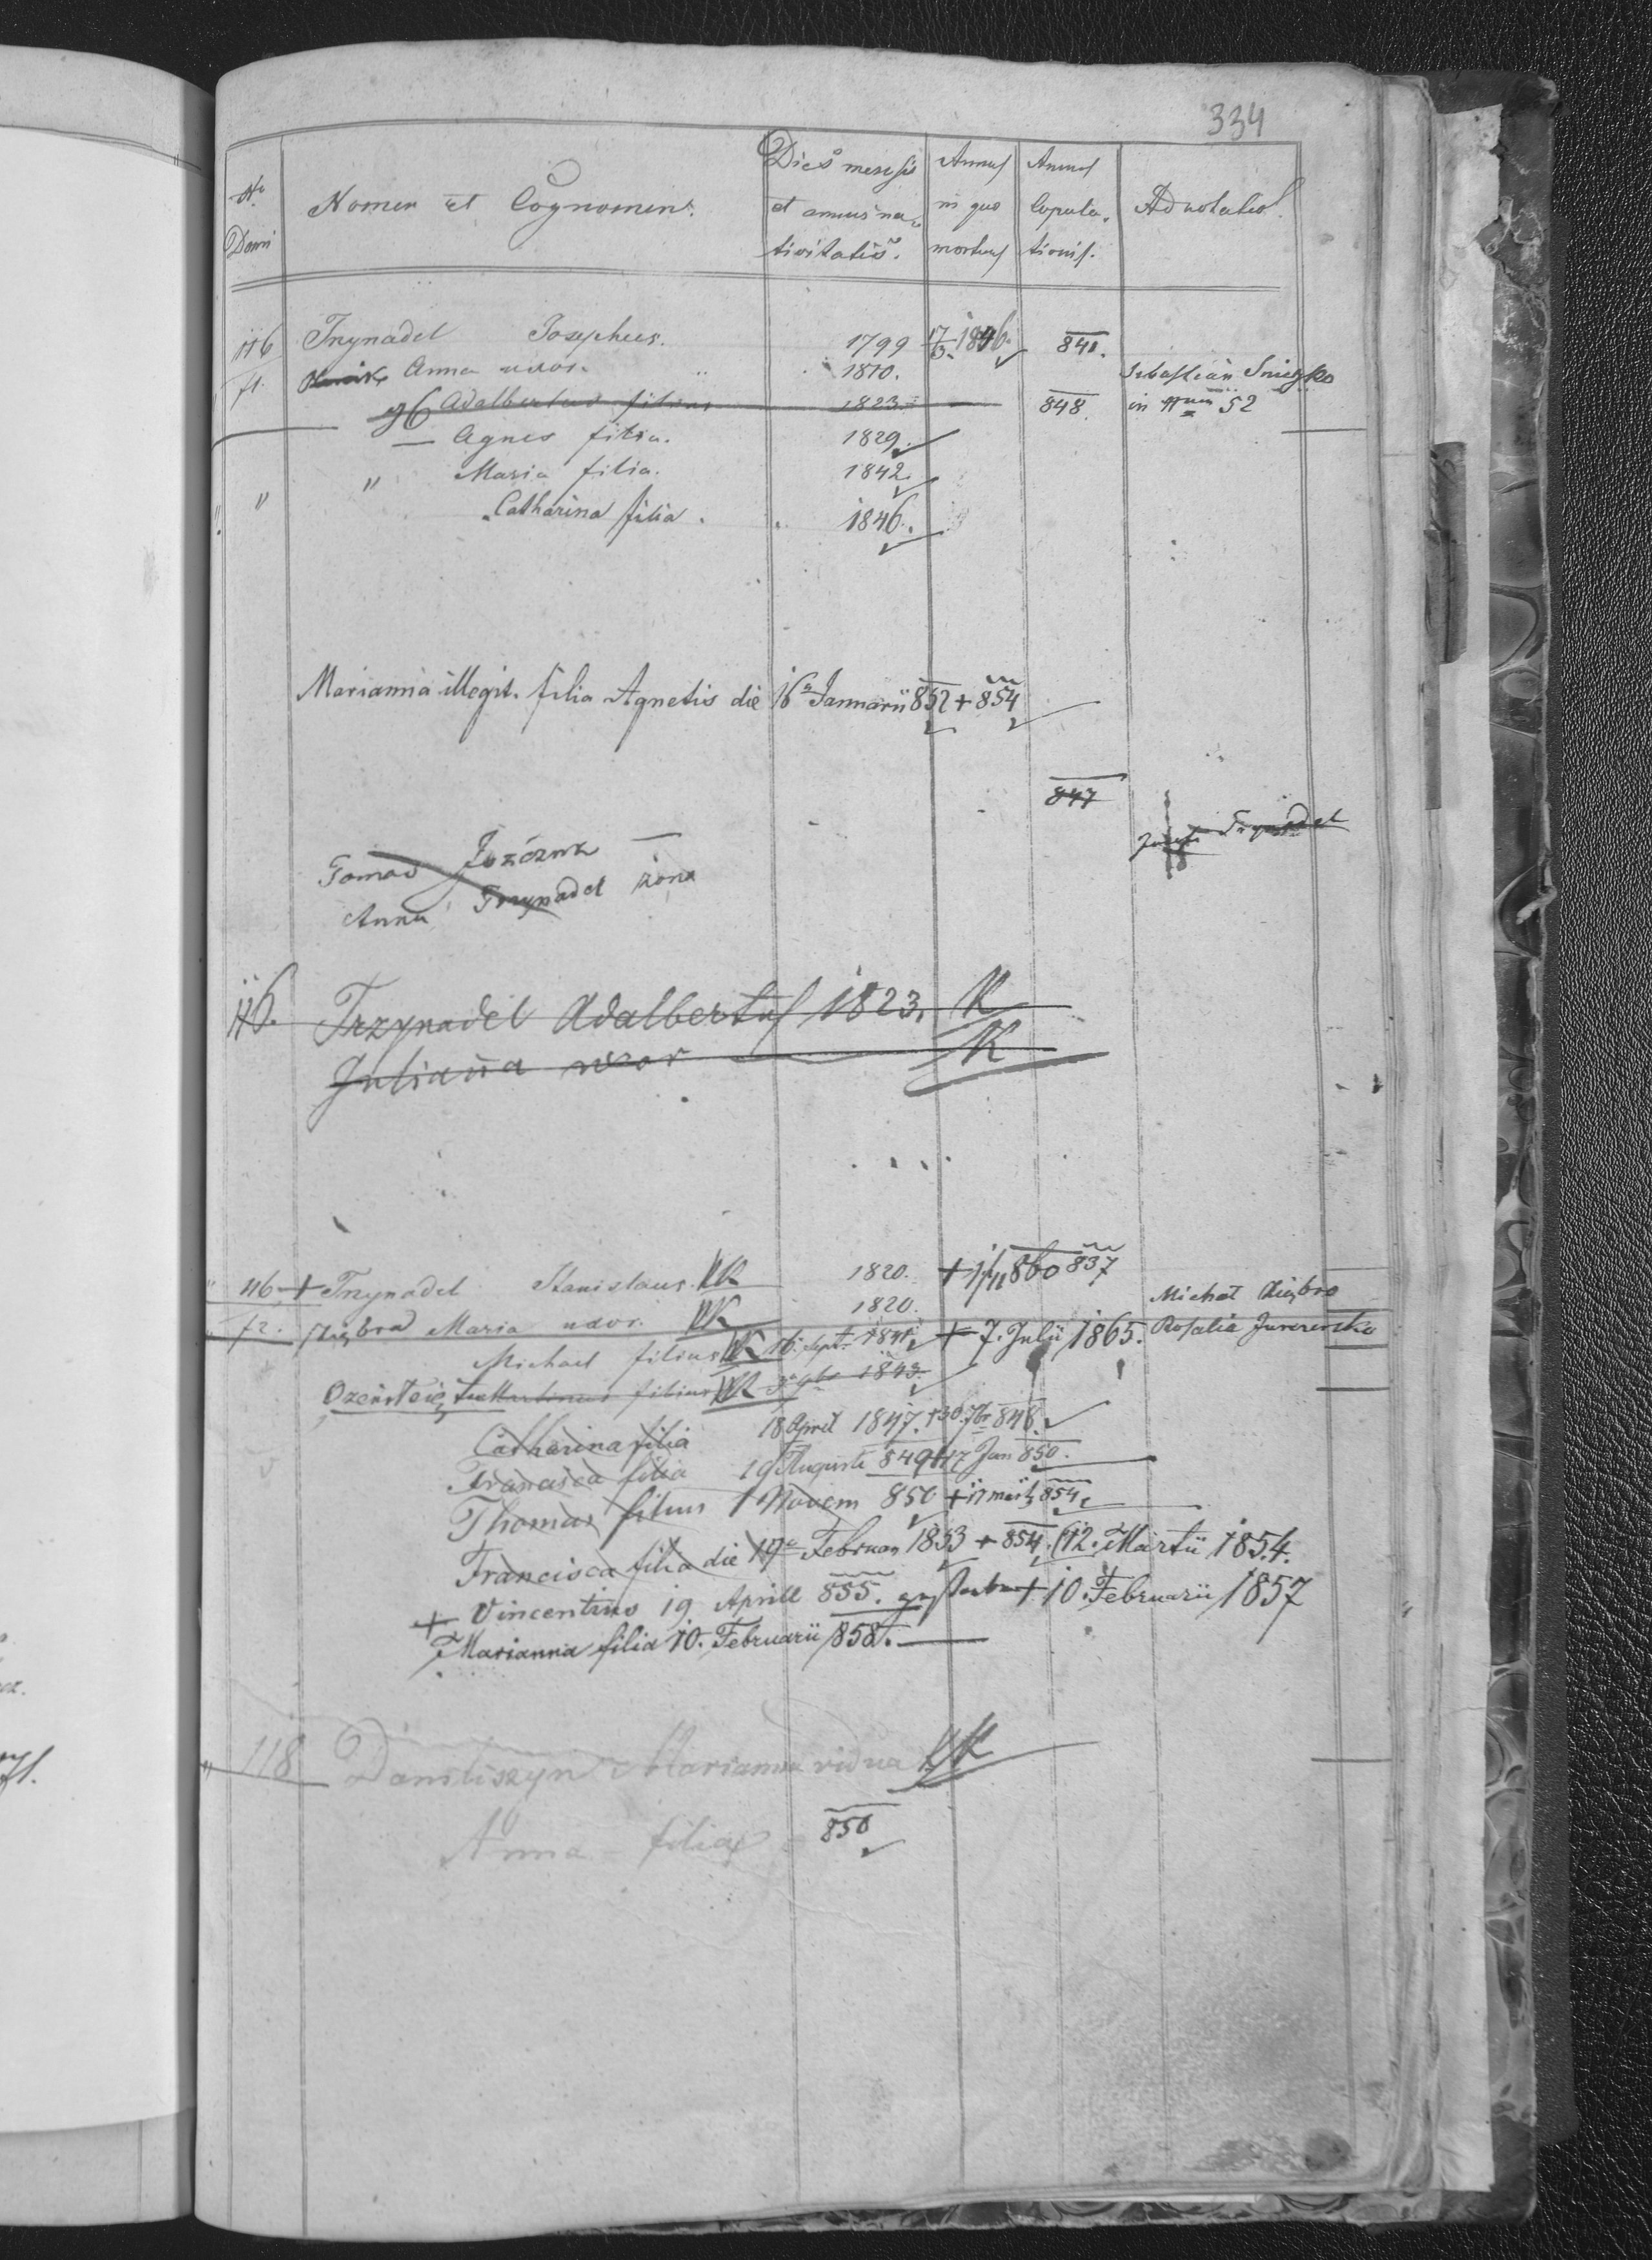 334
No Domi Nomen et Cognomen. Dies mensis et annus nativitatis. Annus in quo mortuus Annus Copulationis. Adnotatio.
116 Trzynadel Josephus. 1799 17/3 1846. 841.
f1. Anna uxor. 1810. Sebastian Snieżko
96 Adalbertus filius 1823. 848. in Num 52
— Agnes filia. 1829.
" " Maria filia. 1842.
Catharina filia. 1846.
Marianna illegit. filia Agnetis die 16a Januarii 852 + 854
847
Tomas Jozczuk — Trzynadel
Anna Trzynadel żona
116. Trzynadel Adalbertus 1823. K
Julianna uxor K
116 + Trzynadel Stanislaus. 1820. + 860 837
f2. Maria uxor. 1820. Michał
Michael filius 16. Sept. 1841. + 7. Julii 1865. Rosalia
filius 1843.
Catharina filia 18 April 1847. +30. 7br 848.
Francisca filia 19 Augusti 849 +17 Jan 850.
Thomas filius 1 Novem 850 + 17 mart 854.
Francisca filia die 19a Februar 1853 + 854. (12. Martii 1854.
+ Vincentius 19 Aprill 855. + 10. Februarii 1857
Marianna filia 10. Februarii 858.
118 Daniliszyn Marianna vidua
Anna - filia 850